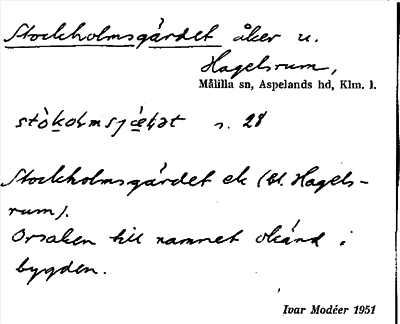 Stockholmsgärdet åker u.
Hagelsrum,
Målilla sn, Aspelands hd, Klm. l.
s. 28
Stockholmsgärdet ek (bl. Hagels-
rum).
Orsaken till namnet okänd i
bygden.
Ivar Modéer 1951